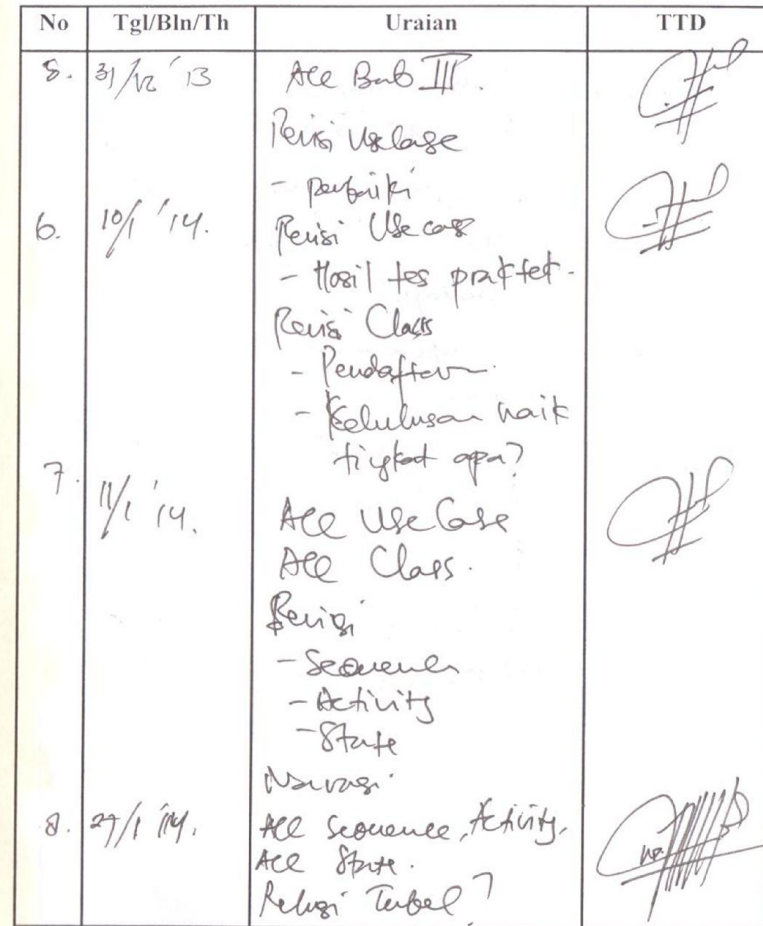 No Tgl/Bln/Th Uraian TTD
5. 31/12 '13 Acc Bab III.
Revisi Usecase
- perbaiki
6. 10/1 '14. Revisi Use case
- Hasil tes praktek.
Revisi Class
- Pendaftaran
- Kelulusan naik
tingkat apa?
7. 11/1 '14. Acc Use Case
Acc Class.
Revisi
- Sequence
- Activity
- State
Narasi
8. 27/1 '14. Acc Sequence, Activity,
Acc State.
Relasi Tabel?